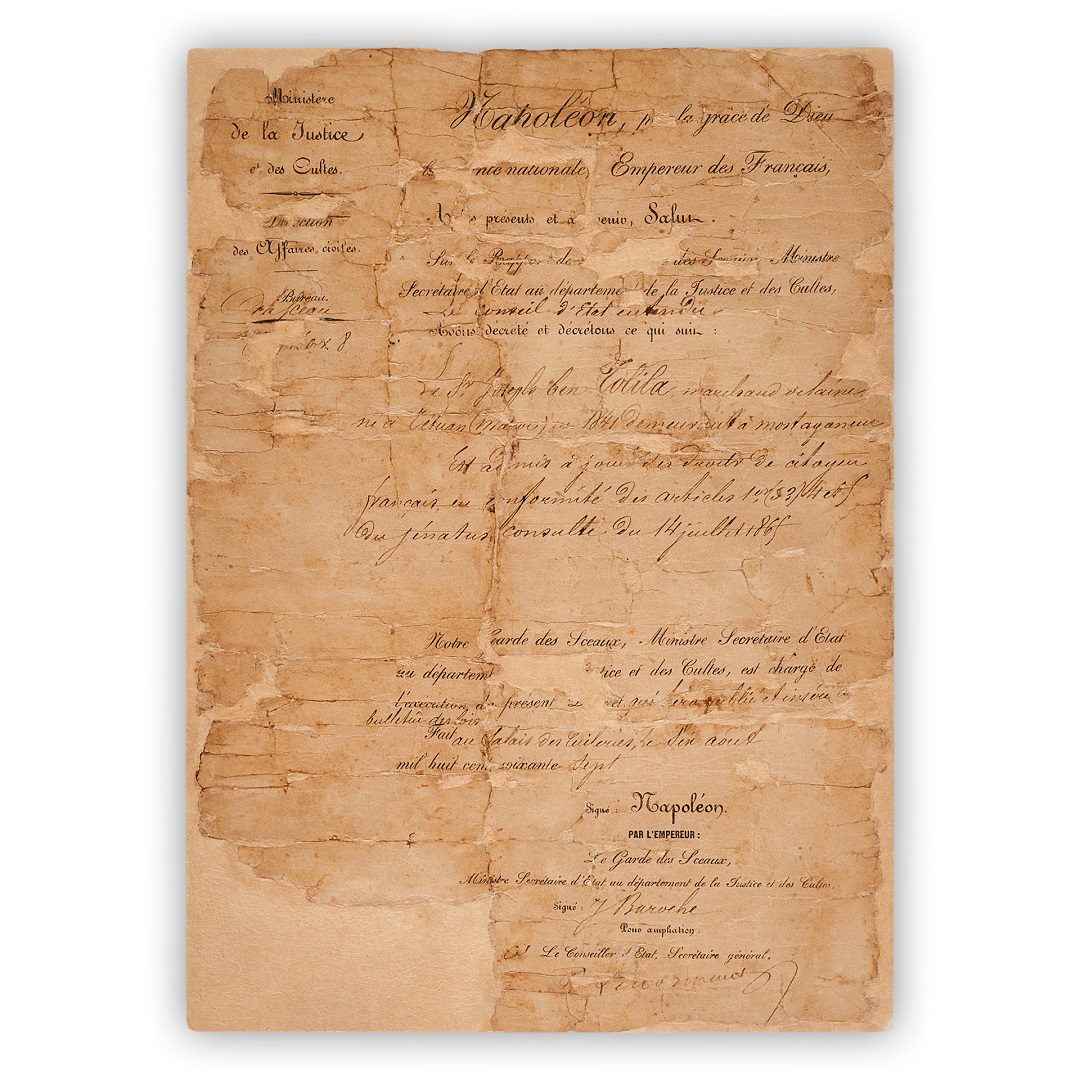 Ministère
de la Justice
et des Cultes.
Direction
des Affaires civiles.
Bureau.
du Sceau
x 8
Napoléon, p la grâce de Dieu
nté nationale, Empereur des Français,
A s présents et à venir, Salut.
Sur le Rapport de Ministre
Secrétaire d'Etat au département de la Justice et des Cultes,
Le Conseil d'Etat entendu
Avons décrété et décrétons ce qui suit :
Le Sr Joseph ben Tolila marchand de laine
né à Tétuan (Maroc) en 1841 demeurant à mostaganem
Est admis à jouir des droits de citoyen
français en conformité des articles 1er 4 et 5
du sénatus consulte du 14 juillet 1865
Notre Garde des Sceaux, Ministre Secrétaire d'Etat
au départem tice et des Cultes, est chargé de
l'exécution du présent et qui sera publié et inséré
bulletin des lois
Fait au Palais des Tuileries, le août
mil huit cent soixante sept
Signé : Napoléon.
PAR L'EMPEREUR :
Le Garde des Sceaux,
Ministre Secrétaire d'Etat au département de la Justice et des Cultes,
Signé : J Baroche
Pour ampliation.
Le Conseiller d'Etat, Secrétaire général,